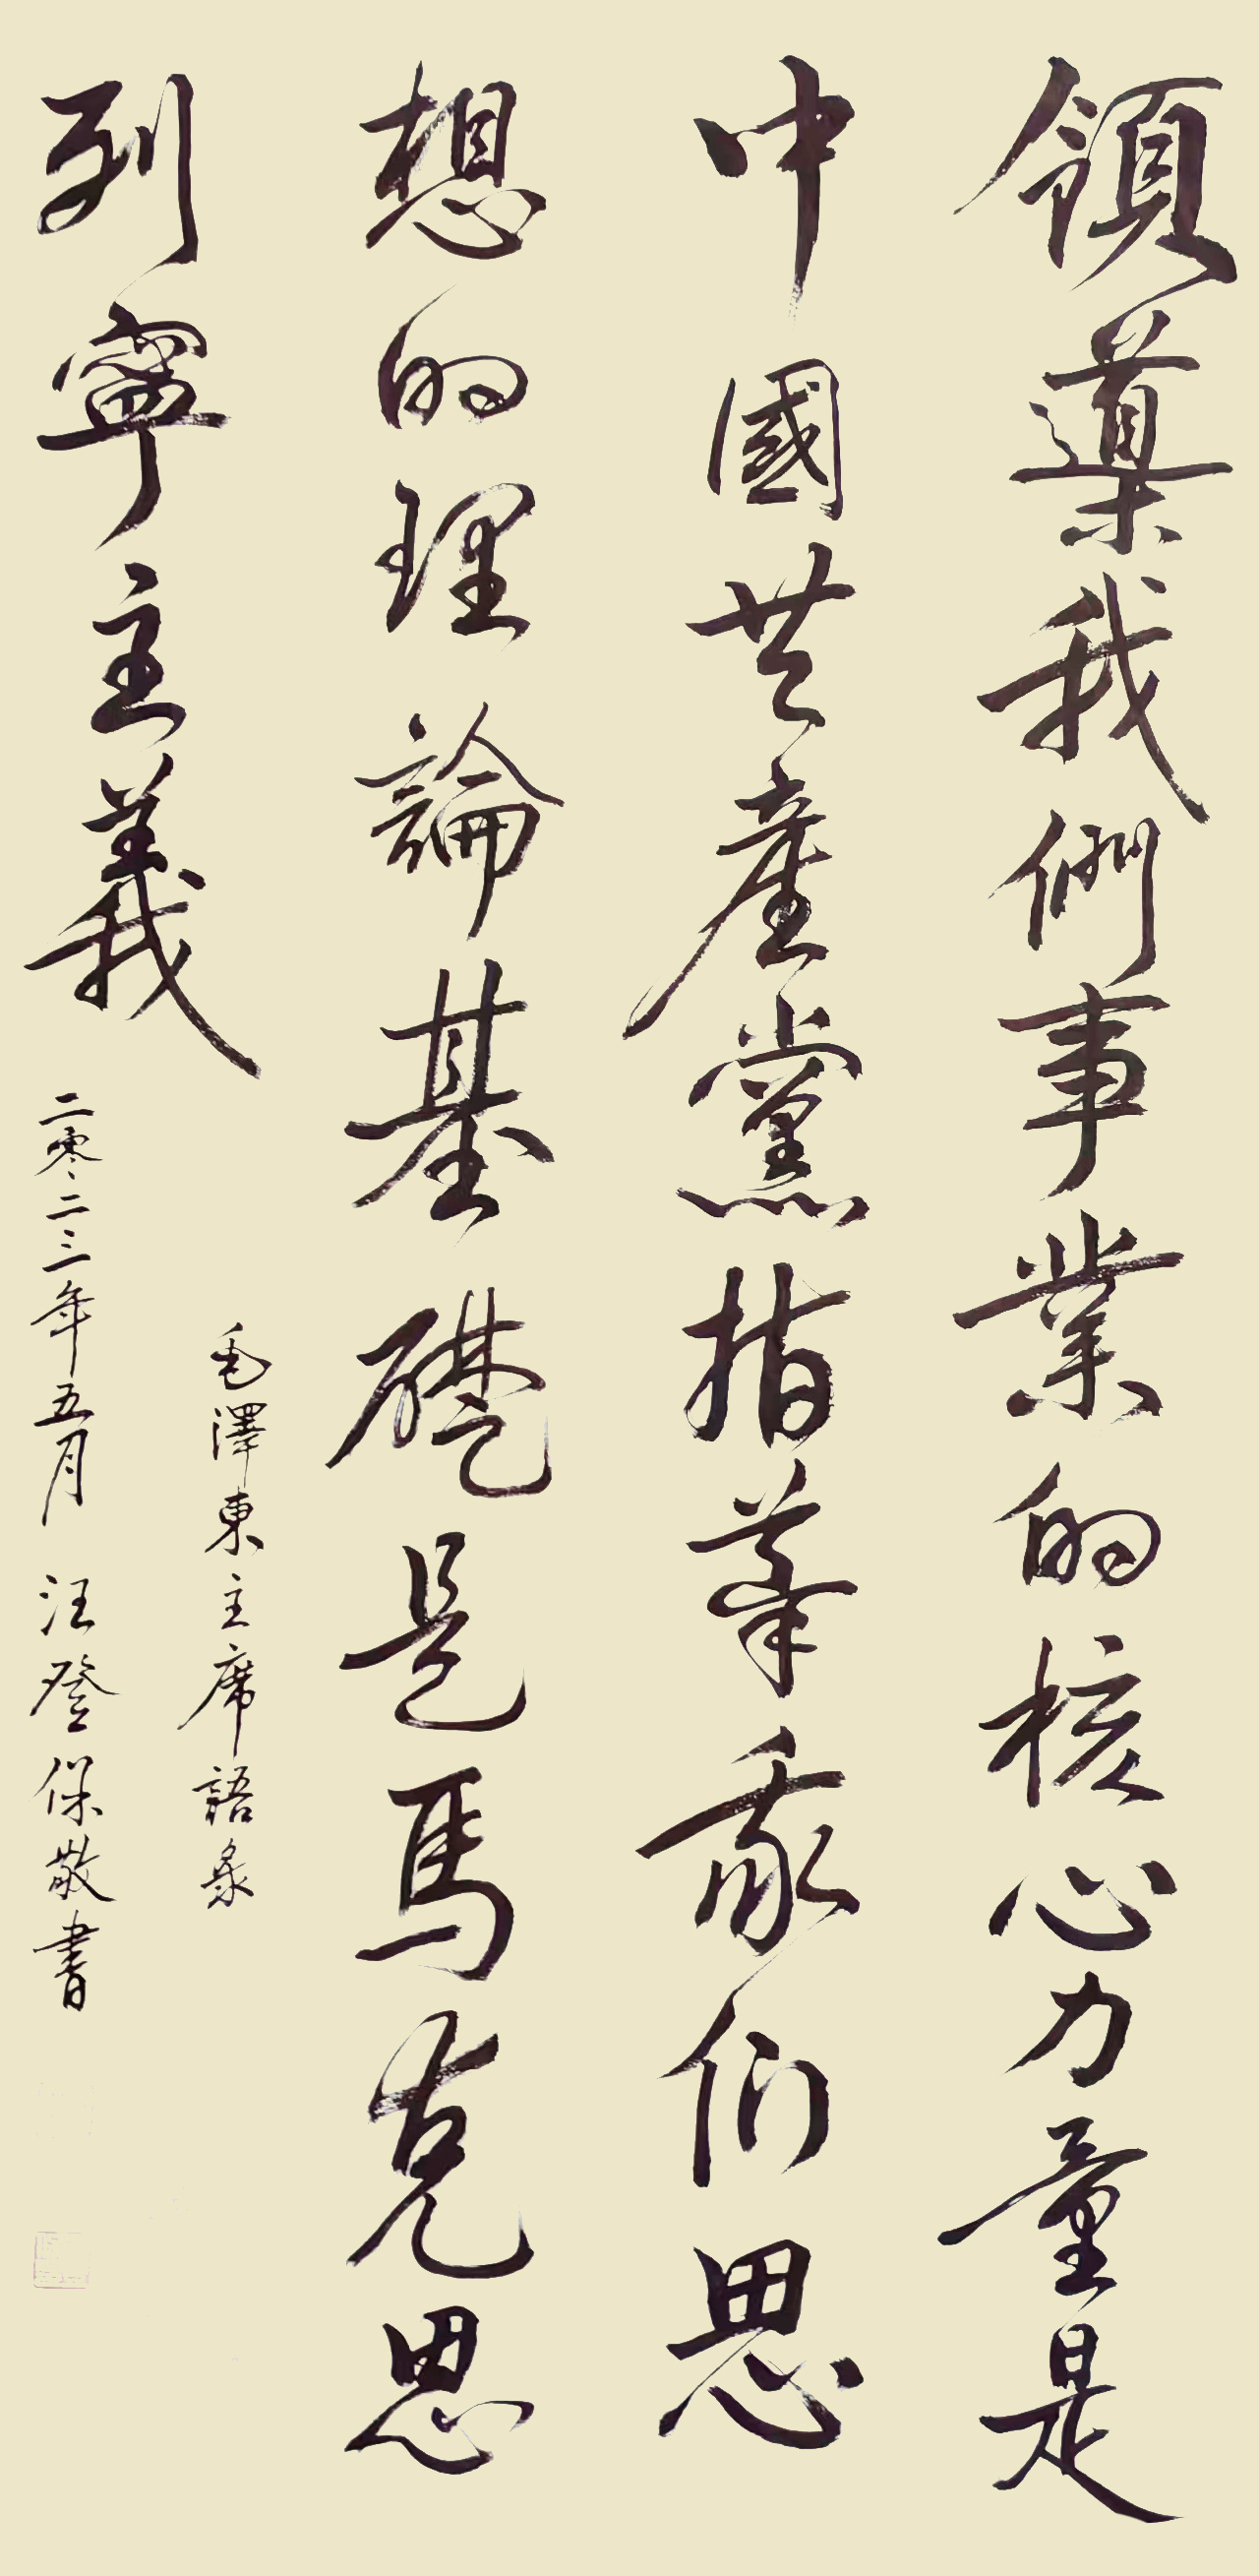 領導我們事業的核心力量是
中國共產黨指導我们思
想的理論基礎是馬克思
列寧主義
毛澤東主席語录
二零二三年五月 汪登保敬書